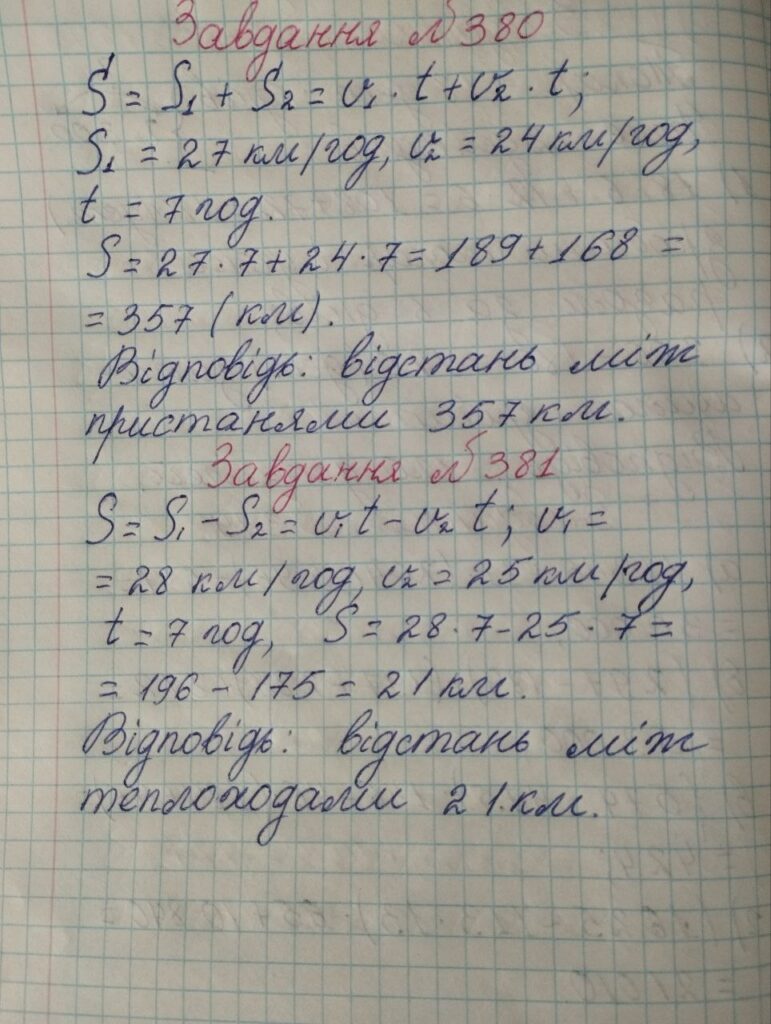 Завдання №380
S = S₁ + S₂ = v₁ · t + v₂ · t;
S₁ = 27 км/год, v₂ = 24 км/год,
t = 7 год.
S = 27 · 7 + 24 · 7 = 189 + 168 =
= 357 (км).
Відповідь: відстань між
пристанями 357 км.
Завдання №381
S = S₁ - S₂ = v₁ t - v₂ t; v₁ =
= 28 км/год, v₂ = 25 км/год,
t = 7 год, S = 28 · 7 - 25 · 7 =
= 196 - 175 = 21 км.
Відповідь: відстань між
теплоходами 21 км.